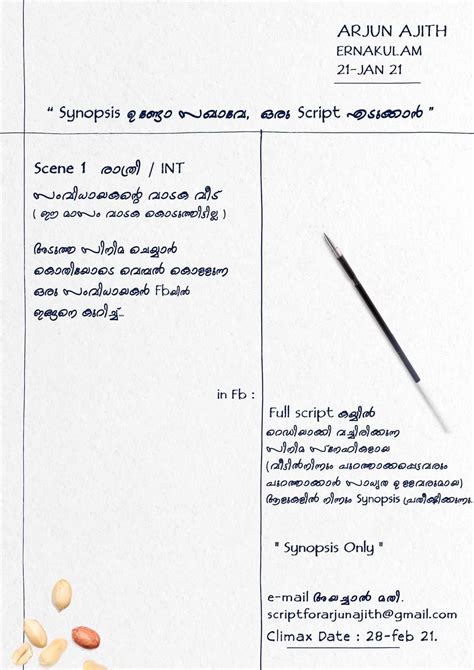 ARJUN AJITH
ERNAKULAM
21-JAN 21
" Synopsis ഉണ്ടോ സഖാവേ, ഒരു Script എടുക്കാൻ "
Scene 1 രാത്രി / INT
സംവിധായകന്റെ വാടക വീട്
( ഈ മാസം വാടക കൊടുത്തിട്ടില്ല )
അടുത്ത സിനിമ ചെയ്യാൻ
കൊതിയോടെ വെമ്പൽ കൊള്ളുന്ന
ഒരു സംവിധായകൻ Fbയിൽ
ഇങ്ങനെ കുറിച്ച്...
in Fb :
Full script കയ്യിൽ
റെഡിയാക്കി വച്ചിരിക്കുന്ന
സിനിമ സ്നേഹികളായ
(വീട്ടിൽനിന്നും പുറത്താക്കപ്പെട്ടവരും
പുറത്താക്കാൻ സാധ്യത ഉള്ളവരുമായ)
ആളുകളിൽ നിന്നും Synopsis പ്രതീക്ഷിക്കുന്നു.
" Synopsis Only "
e-mail അയച്ചാൽ മതി.
scriptforarjunajith@gmail.com
Climax Date : 28-feb 21.